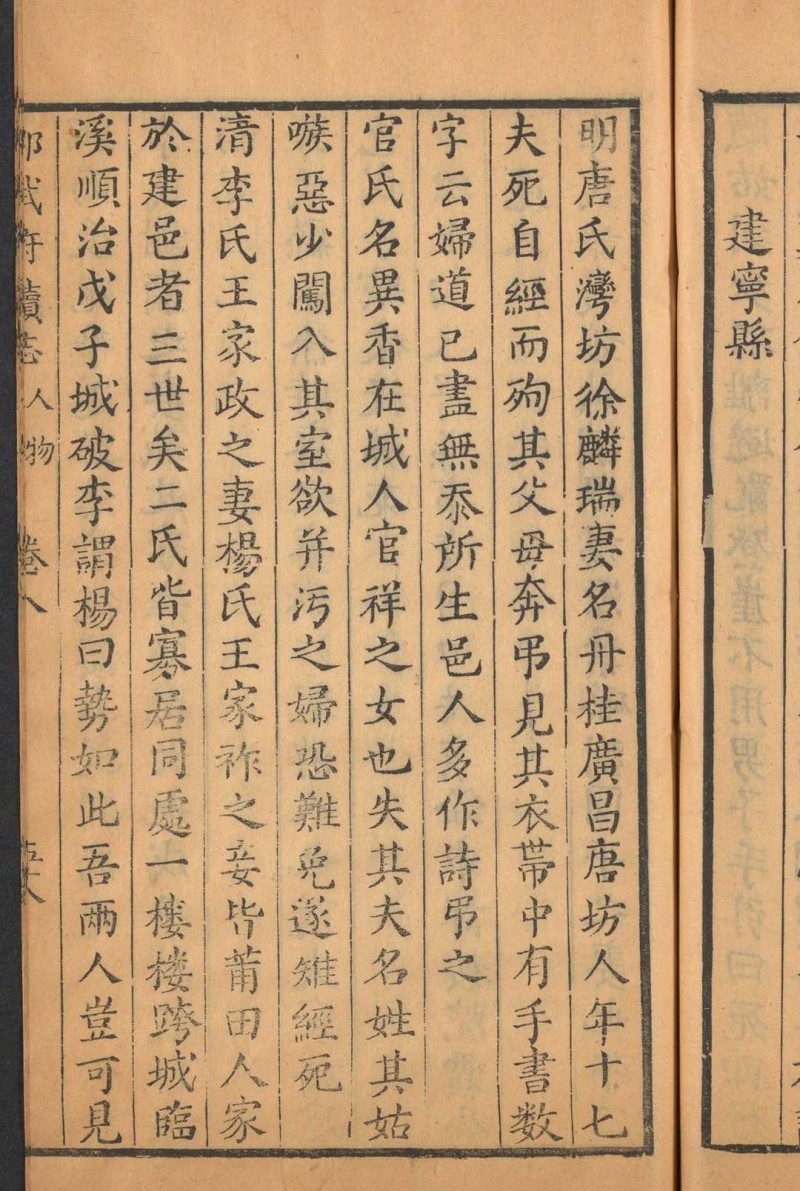 建寧縣
明唐氏灣坊徐麟瑞妻名丹桂廣昌唐坊人年十七
夫死自經而殉其父母奔弔見其衣帶中有手書數
字云婦道已盡無忝所生邑人多作詩弔之
官氏名異香在城人官祥之女也失其夫名姓其姑
嗾惡少闖入其室欲并污之婦恐難免遂雉經死
清李氏王家政之妻楊氏王家祚之妾皆莆田人家
於建邑者三世矣二氏皆寡居同處一樓樓跨城臨
溪順治戊子城破李謂楊曰勢如此吾兩人豈可見
武府續志 人物 卷八